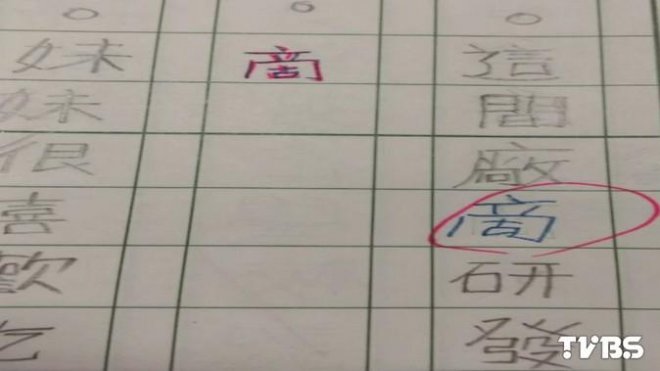 這間廠商研發
商
妹妹很喜歡吃
TVBS